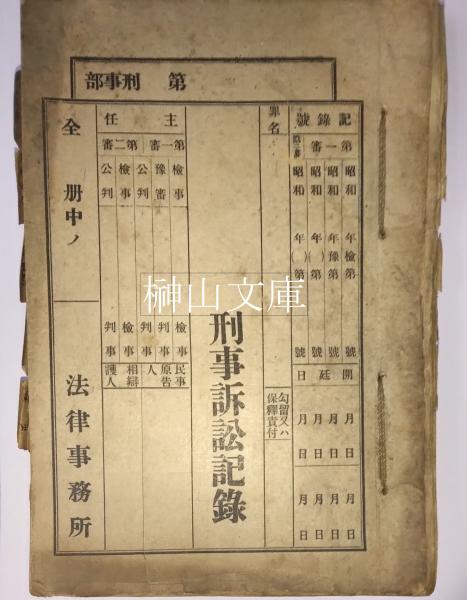 第　刑事部
記錄號
第一審
昭和　年檢第　號
昭和　年豫第　號
昭和　年（　）第　號
昭和　年（　）第　號
開廷日
月　日　月　日
月　日　月　日
月　日　月　日
月　日　月　日
罪名
勾留又ハ
保釋責付
刑事訴訟記錄
主任
第一審
檢事
豫審
公判
第二審
檢事
公判
檢事
判事
判事
檢事
判事
民事
原告
人
相辯
護人
全　册中ノ
法律事務所
榊山文庫